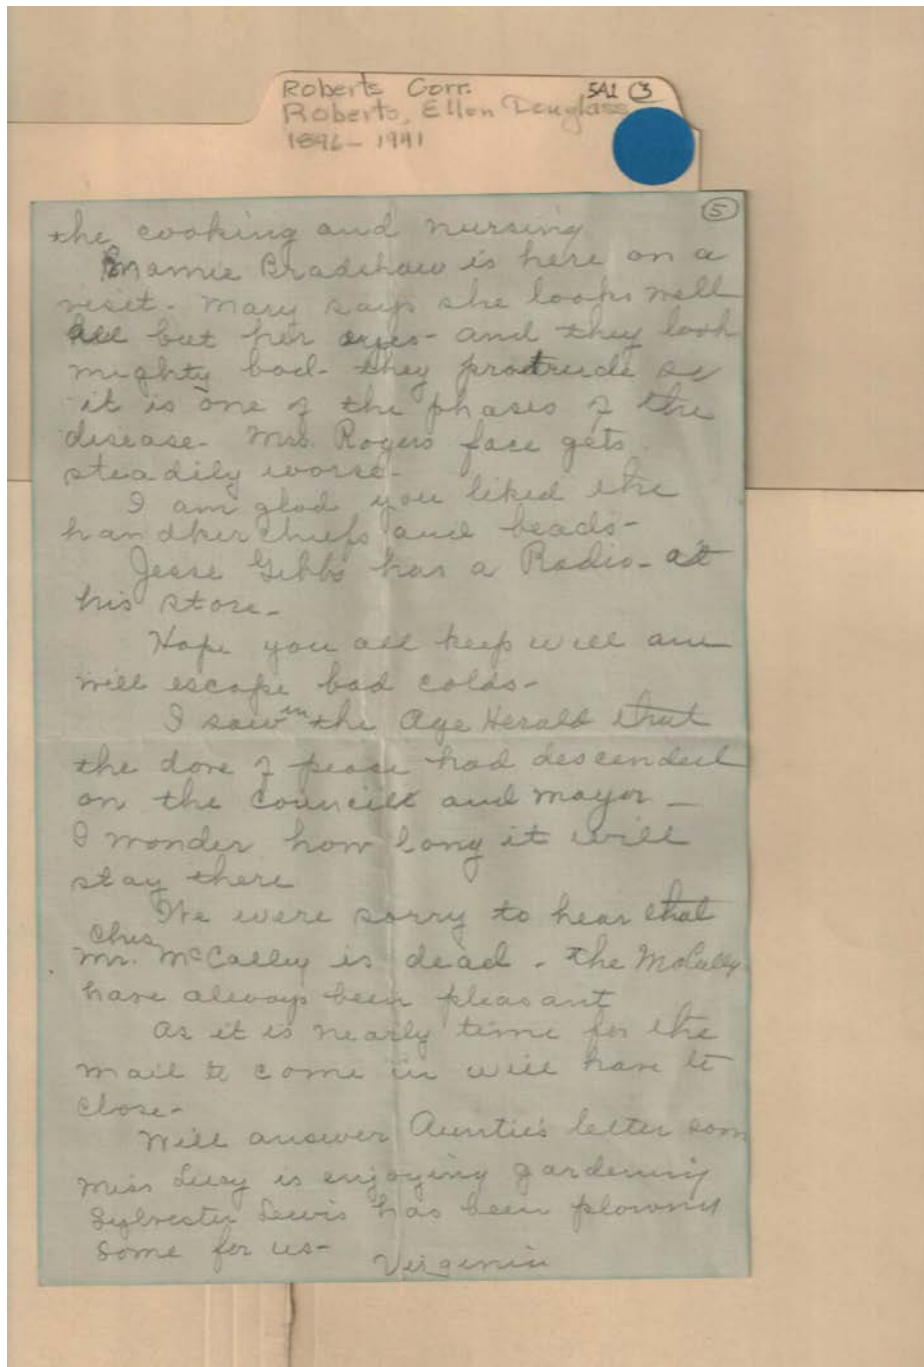 Roberts Corr. 5A1 (3)
Roberts, Ellen Douglass
1896-1941
(5)
the cooking and nursing
Mamie Bradshaw is here on a
visit- Mary says she looks well
all but her eyes- and they look
mighty bad- they protrude so
it is one of the phases of the
disease- Mrs. Rogers face gets
steadily worse-
I am glad you liked the
handkerchiefs and beads-
Jesse Gibbs has a Radio- at
his store-
Hope you all keep well and
will escape bad colds-
I saw in the Age Herald that
the dove of peace had descended
on the council and mayor-
I wonder how long it will
stay there
We were sorry to hear that
Chris
Mr. McCalley is dead- the McCalleys
have always been pleasant
As it is nearly time for the
mail to come in will have to
close-
Will answer Auntie's letter soon
Miss Lucy is enjoying gardening
Sylvester Lewis has been plowing
some for us-
Virginia